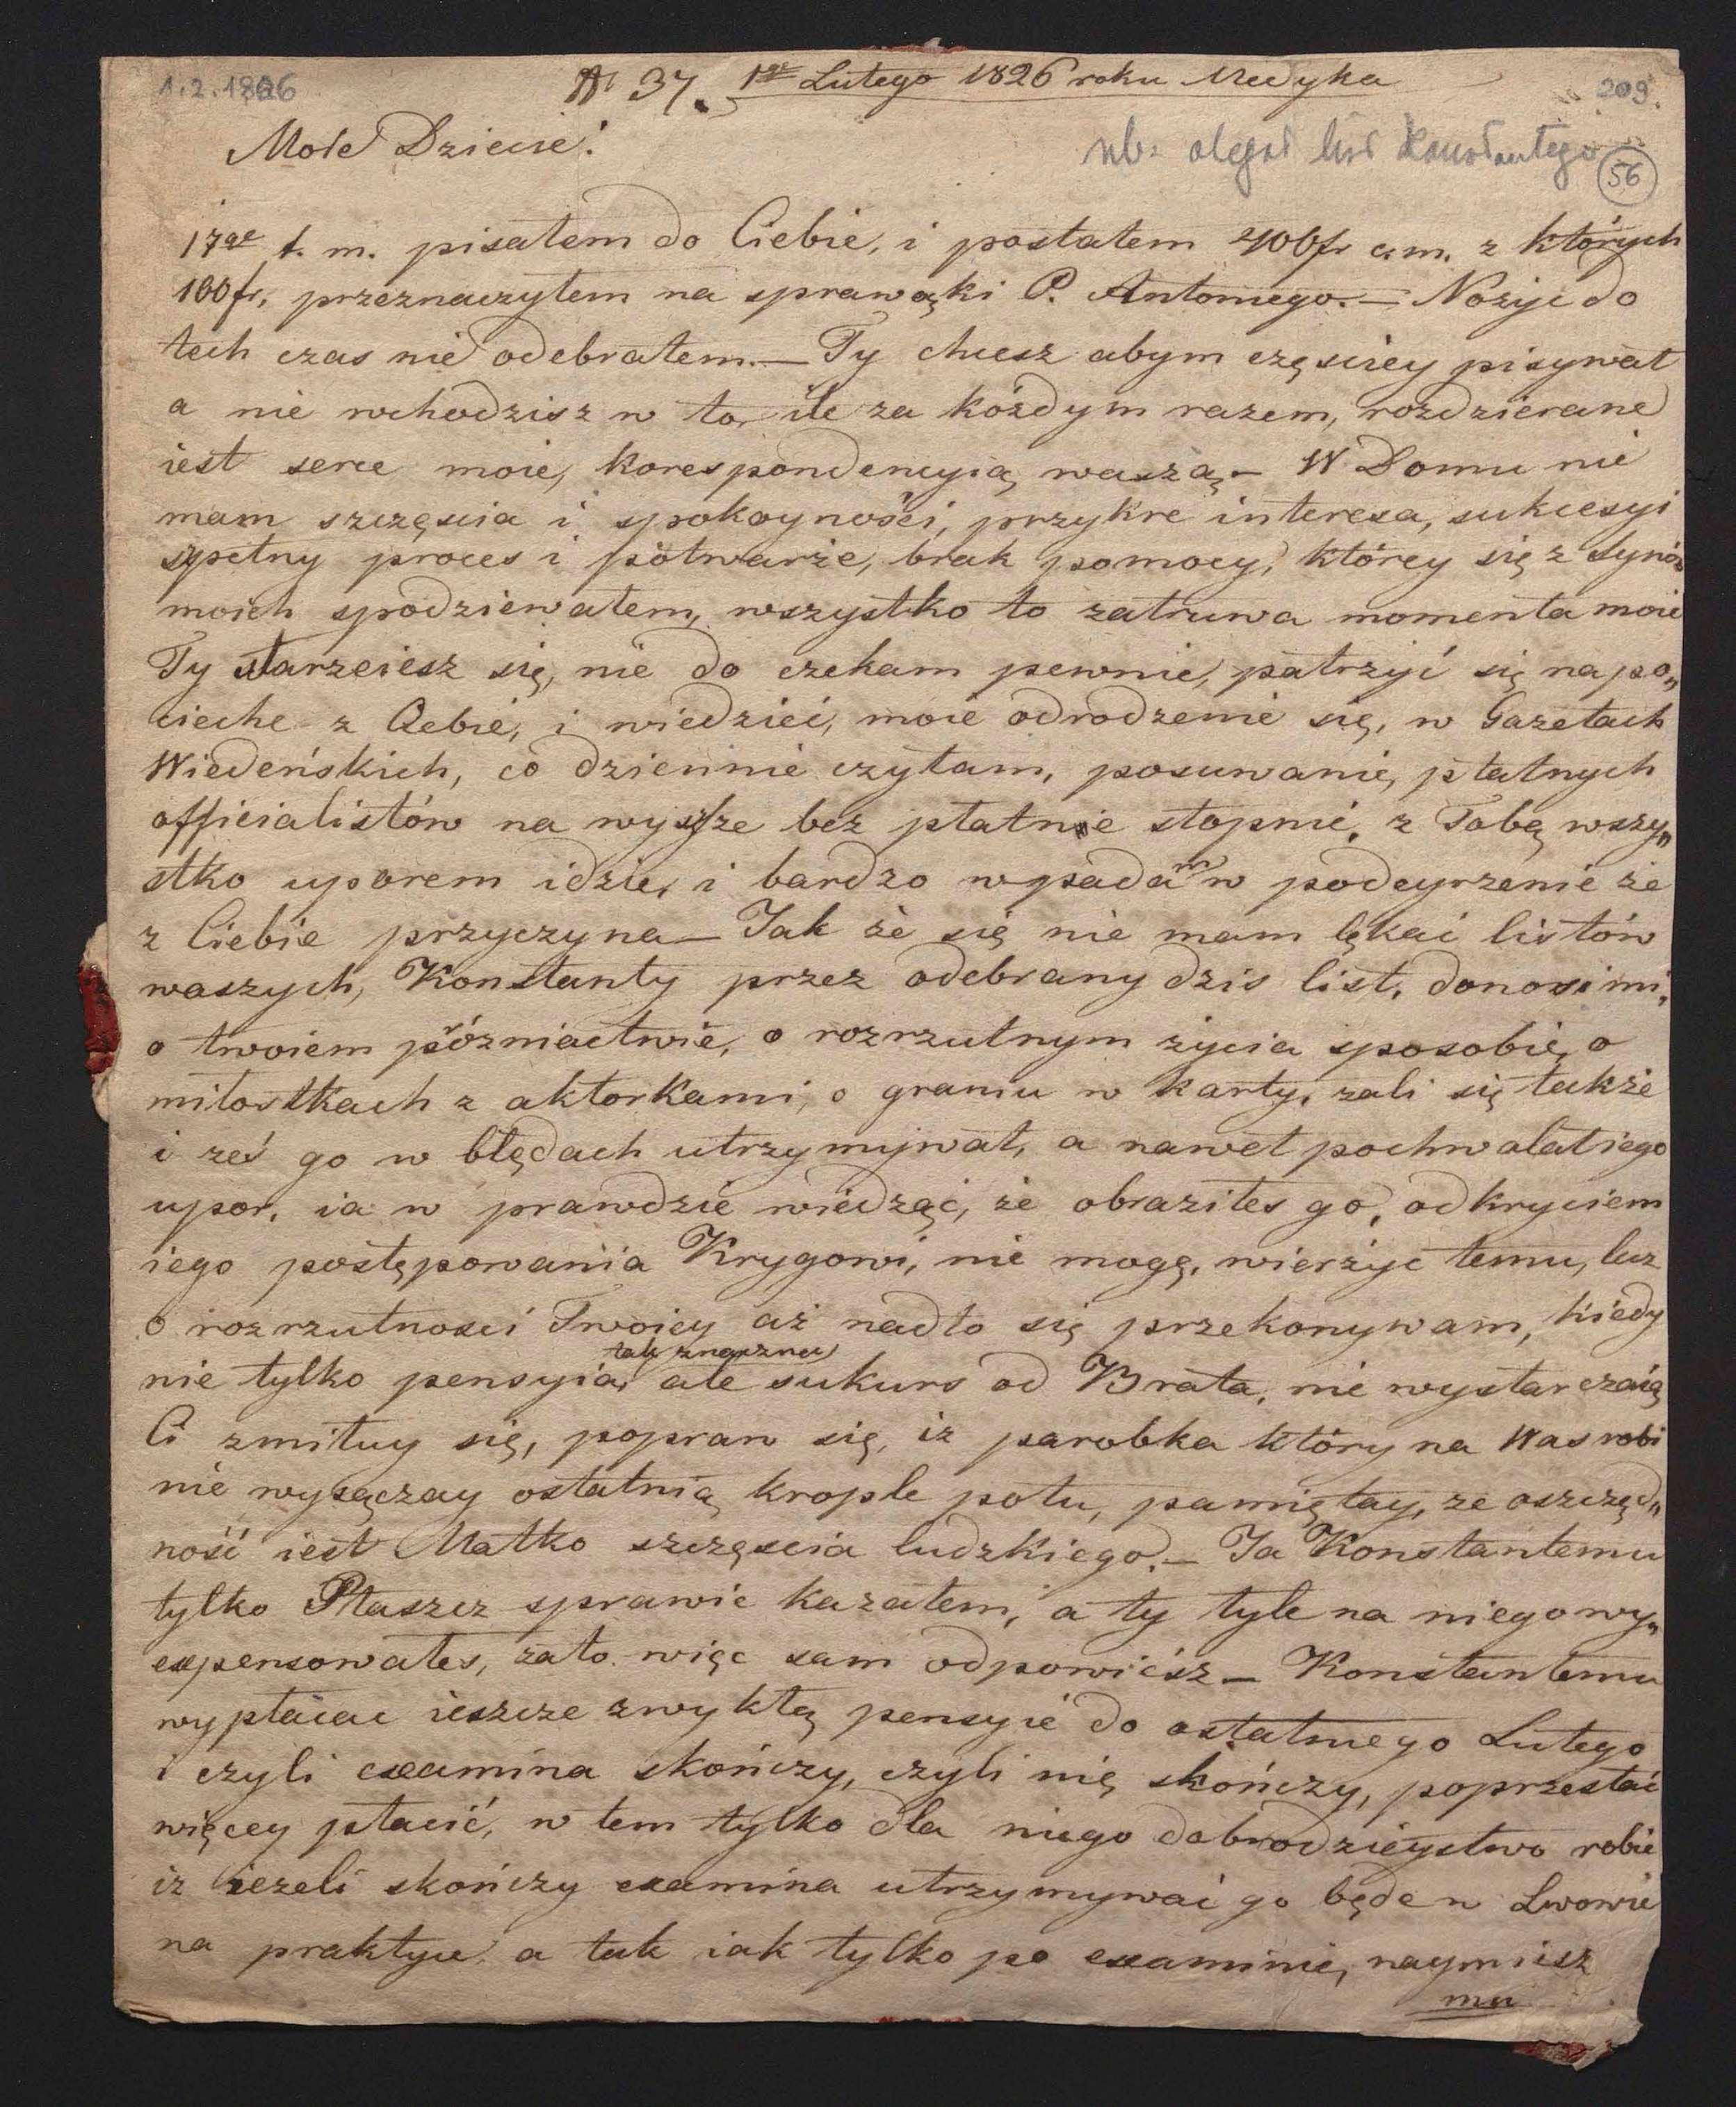 1.2.1826
N 37. 1go Lutego 1826 roku Medyka
209.
Moie Dziecie!
nb. olegat list Konstantego
56
17go t. m. pisałem do Ciebie, i posłałem 400 fr c. m. z których
100 fr, przeznaczyłem na sprawąki P. Antoniego. — Nożyc do
tech czas nie odebrałem. — Ty chcesz abym częściey pisywał
a nie wchodzisz w to, ile za każdym razem, rozdzierane
iest serce moie, korespondencyią waszą — W Domu nie
mam szczęscia i spokoyności, przykre interesa, sukcesyi
szpetny proces i potwarże, brak pomocy, którey się z synów
moich spodziewałem, wszystko to zatruwa momenta moie
Ty starzeiesz się, nie do czekam pewnie, patrzyć się na po„
cieche z Ciebie, i wiedzieć, moie odrodzenie się, w Gazetach
Wiedeńskich, co dziennie czytam, posuwanie, płatnych
officialistów na wyższe bez płatnie stopnie, z Tobą wszy„
stko uporem idzie, i bardzo wpadam w podeyrzenie że
z Ciebie przyczyna — Jak że się nie mam lękać listów
waszych, Konstanty przez odebrany dzis list, donosi mi,
o twoiem próżniactwie, o rozrzutnym życia sposobie, o
miłostkach z aktorkami, o graniu w karty, żali się także
i żeś go w błędach utrzymywał, a nawet pochwalał iego
upor, ia w prawdzie wiedząc, że obraziłes go, odkryciem
iego postępowania Krygowi, nie mogę, wierzyc temu, lecz
o rozrzutnosci Twoiey aż nadto się przekonywam, kiedy
tak znaczna
nie tylko pensyia, ale sukurs od Brata, nie wystarczaią
Ci zmiłuy się, popraw się, iż parobka który na Was robi
nie wysączay ostatnią krople potu, pamiętay, że oszczęd„
ność iest Matko szczęscia ludzkiego. — Ja Konstantemu
tylko Płaszcz sprawić kazałem, a ty tyle na niego wy„
expensowałes, zato więc sam odpowiesz — Konstantemu
wypłacac ieszcze zwykłą pensyie do ostatniego Lutego
i czyli examina skończy, czyli nię skończy, poprzestać
więcey płacić, w tem tylko dla niego dobrodzieystwo robie
iż ieżeli skończy examina utrzymywać go będe w Lwowie
na praktyce, a tak iak tylko po examinie, naymiesz
mu